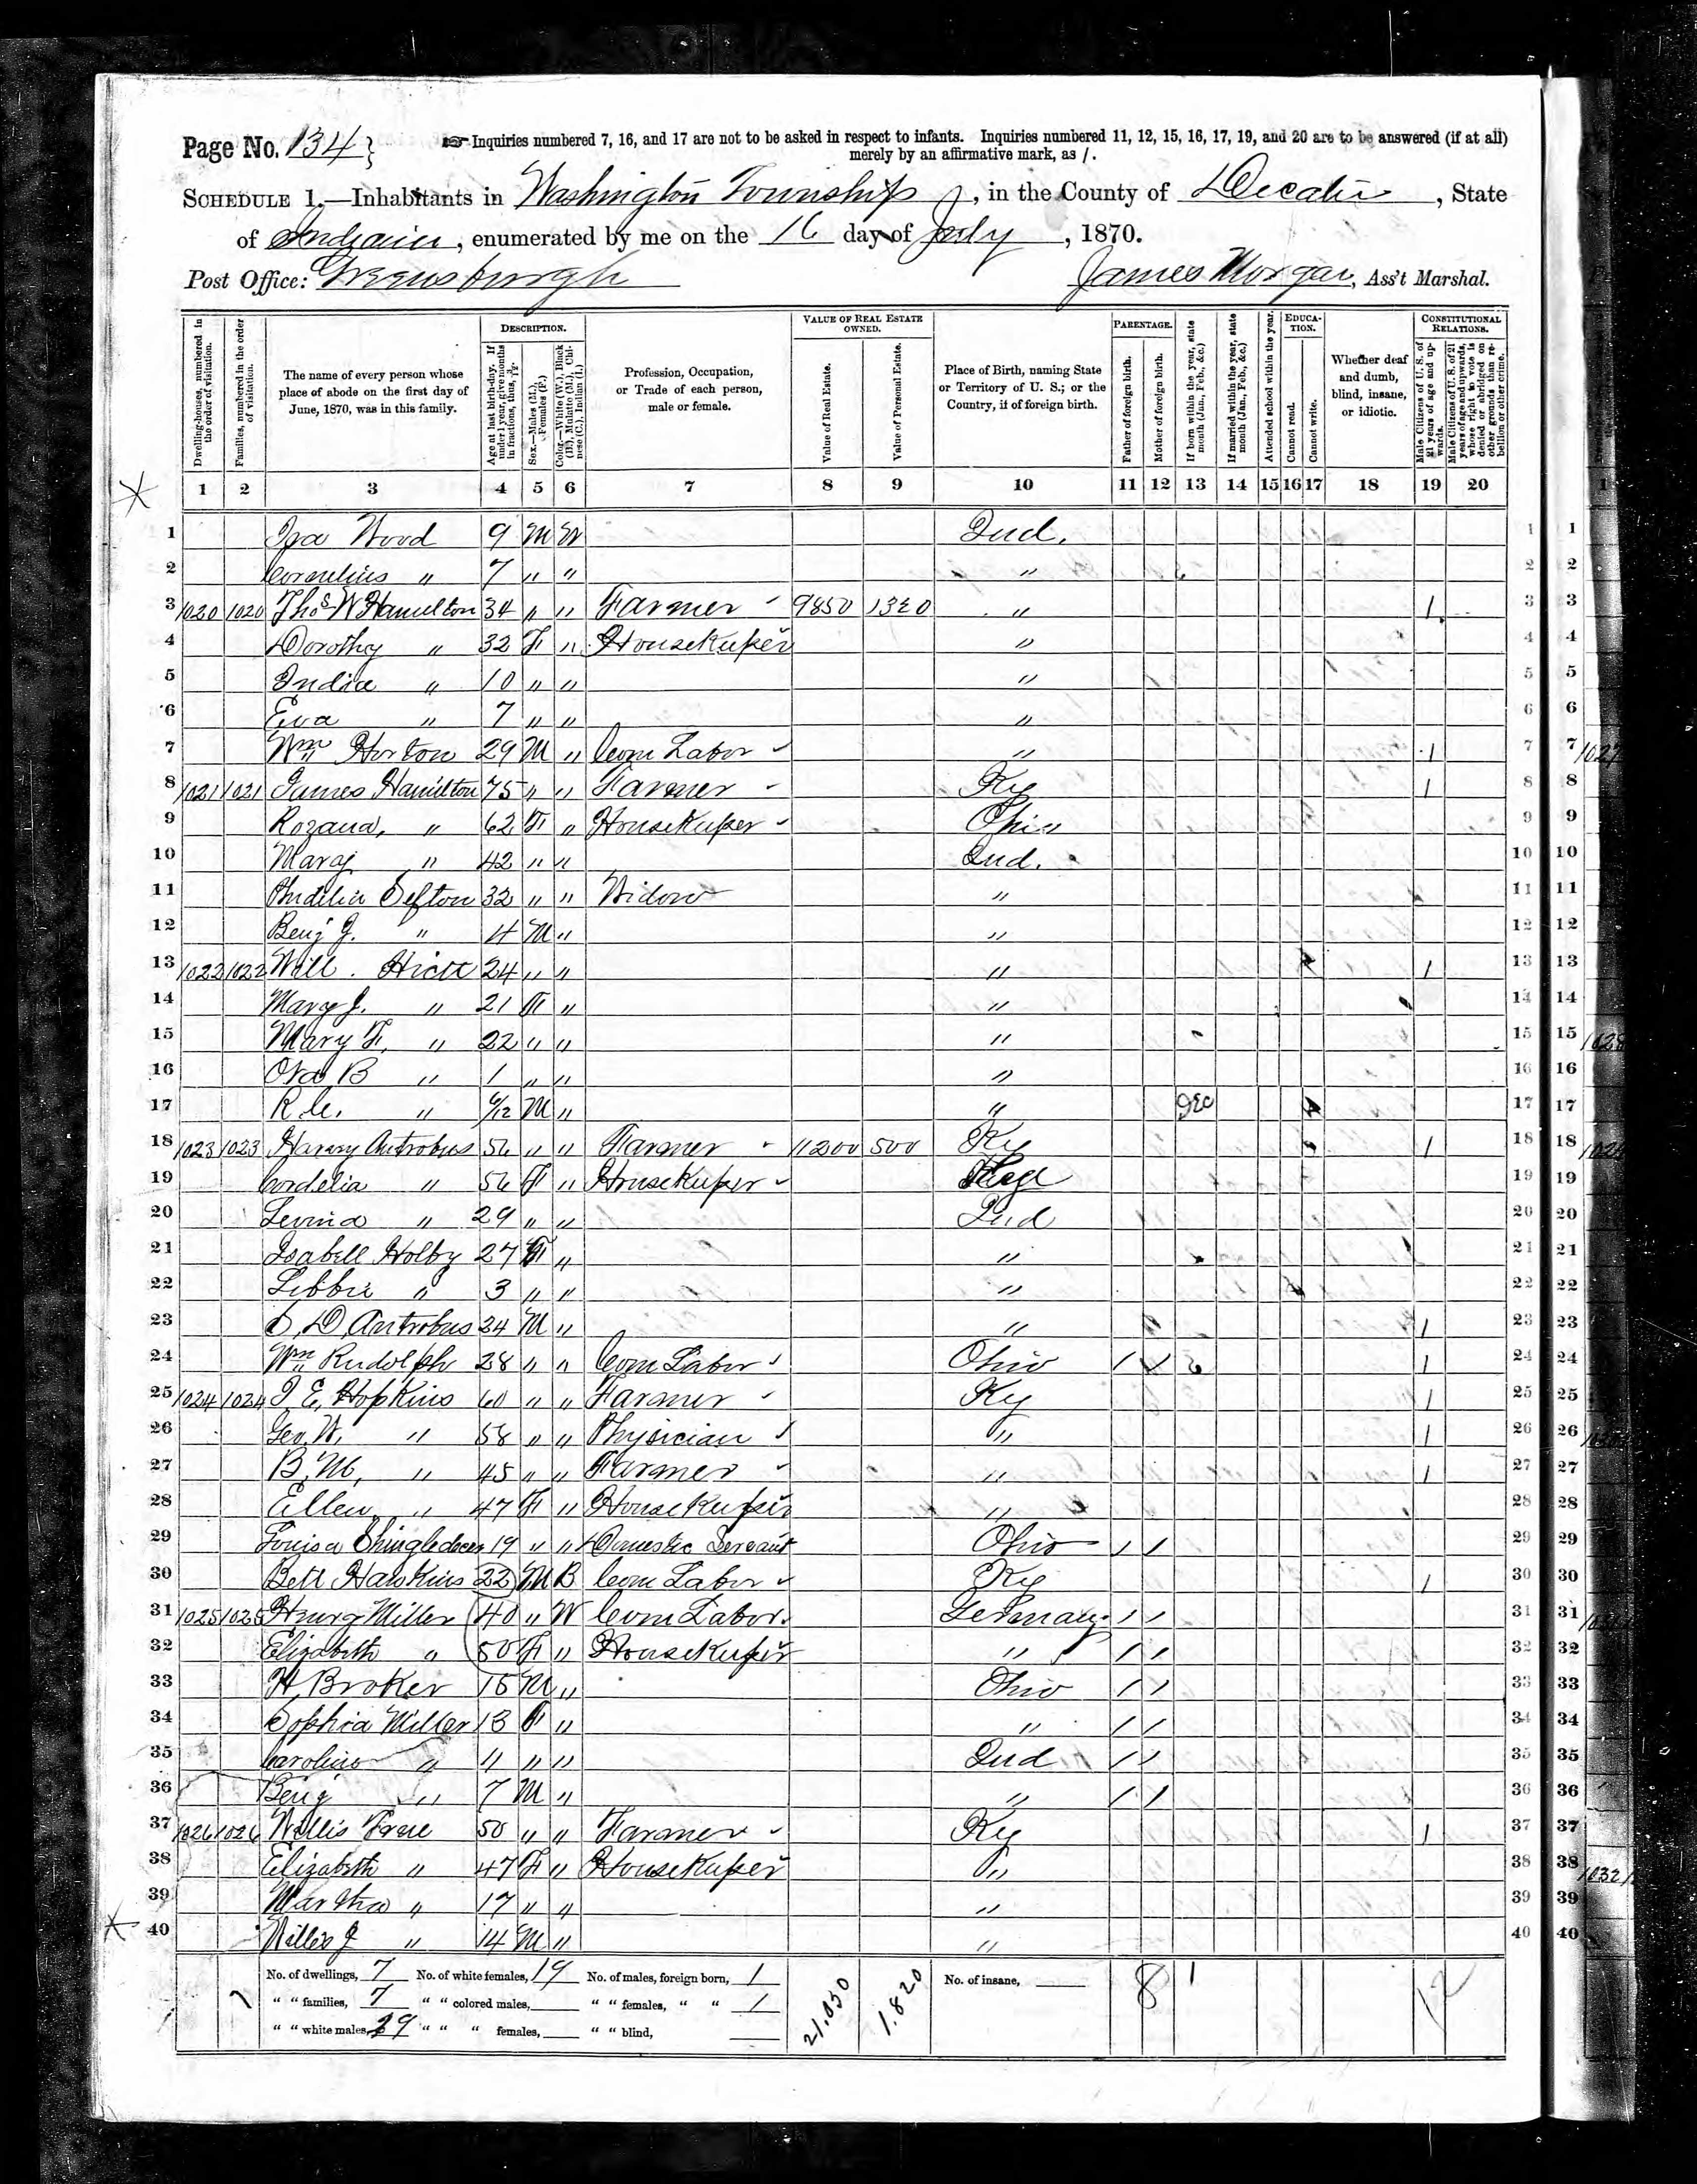 Page No. 134 } ☞ Inquiries numbered 7, 16, and 17 are not to be asked in respect to infants. Inquiries numbered 11, 12, 15, 16, 17, 19, and 20 are to be answered (if at all)
merely by an affirmative mark, as /.
SCHEDULE 1.—Inhabitants in Washington Township, in the County of Decatur, State
of Indiana, enumerated by me on the 16 day of July, 1870.
Post Office: Greensburgh James Morgan, Ass't Marshal.
Dwelling-houses, numbered in the order of visitation.
Families, numbered in the order of visitation.
The name of every person whose place of abode on the first day of June, 1870, was in this family.
DESCRIPTION.
Age at last birth-day. If under 1 year, give months in fractions, thus, 3/12.
Sex.—Males (M.), Females (F.)
Color.—White (W.), Black (B.), Mulatto (M.), Chinese (C.), Indian (I.)
Profession, Occupation, or Trade of each person, male or female.
VALUE OF REAL ESTATE OWNED.
Value of Real Estate.
Value of Personal Estate.
Place of Birth, naming State or Territory of U. S.; or the Country, if of foreign birth.
PARENTAGE.
Father of foreign birth.
Mother of foreign birth.
If born within the year, state month (Jan., Feb., &c.)
If married within the year, state month (Jan., Feb., &c.)
Attended school within the year.
EDUCATION.
Cannot read.
Cannot write.
Whether deaf and dumb, blind, insane, or idiotic.
CONSTITUTIONAL RELATIONS.
Male Citizens of U. S. of 21 years of age and upwards.
Male Citizens of U. S. of 21 years of age and upwards, whose right to vote is denied or abridged on other grounds than rebellion or other crime.
1 2 3 4 5 6 7 8 9 10 11 12 13 14 15 16 17 18 19 20
1 Ira Wood 9 M W Ind. 1
2 Cornelius " 7 " " " 2
3 1020 1020 Thos W Hamilton 34 " " Farmer 9850 1320 " / 3
4 Dorothy " 32 F " Housekeeper " 4
5 India " 10 " " " 5
6 Eva " 7 " " " 6
7 Wm Horton 29 M " Com Labor " / 7
8 1021 1021 James Hamilton 75 " " Farmer Ky / 8
9 Rozana, " 62 F " Housekeeper Ohio 9
10 Mary " 42 " " Ind. 10
11 Sefton 32 " " Widow " 11
12 Benj G. " 4 M " " 12
13 1022 1022 Will. 24 " " " / 13
14 Mary J. " 21 F " " 14
15 Mary F. " 22 " " " 15
16 Ora B " 1 " " " 16
17 " 6/12 M " " Dec 17
18 1023 1023 Harvy Antrobus 56 " " Farmer 11200 500 Ky / 18
19 Cordelia " 56 F " Housekeeper 19
20 Levina " 29 " " Ind 20
21 Isabell Holby 27 F " " 21
22 Libbie " 3 " " " 22
23 D, Antrobus 24 M " " / 23
24 Wm Rudolph 28 " " Com Labor Ohio / / / 24
25 1024 1024 E, Hopkins 60 " " Farmer Ky / 25
26 Geo. W, " 58 " " Physician " / 26
27 B, M, " 45 " " Farmer " / 27
28 Ellen " 47 F " Housekeeper " 28
29 Louisa 19 " " Domestic Servant Ohio / / 29
30 Hawkins 22 M B Com Labor Ky / 30
31 1025 1025 Henry Miller 40 " W Com Labor. Germany / / 31
32 Elizabeth " 50 F " Housekeeper " / / 32
33 H, Broker 15 M " Ohio / / 33
34 Sophia Miller 13 F " " / / 34
35 Caroline " 11 " " Ind / / 35
36 Benj " 7 M " " / / 36
37 1026 1026 Willis 50 " " Farmer Ky / 37
38 Elizabeth " 47 F " Housekeeper " 38
39 Martha " 17 " " " 39
40 Willis J " 14 M " " 40
No. of dwellings, 7 No. of white females, 19 No. of males, foreign born, 1 21.050 1.820 No. of insane, 8 1 12
" " families, 7 " " colored males, " " females, " " 1
" " white males, 29 " " " females, " " blind,